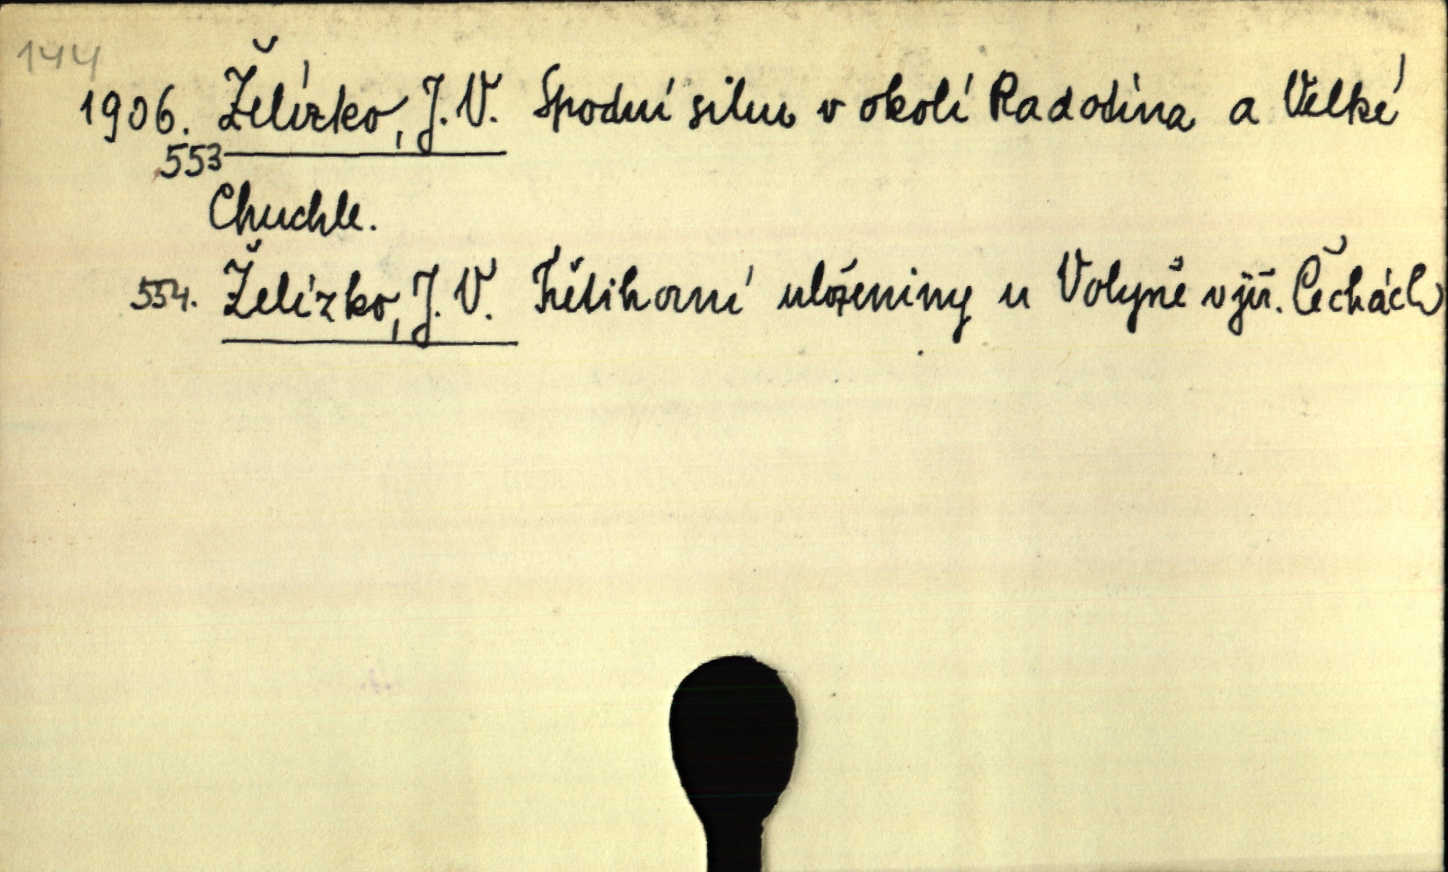 144
1906. Želízko, J. V. Spodní silur v okolí Radotína a Velké
553
Chuchle.
554. Želízko, J. V. Třetihorní uloženiny u Volyně v již. Čechách